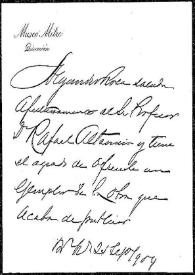 Museo Mitre
Dirección
Alejandro Rosa saluda
Afectuosamente al Sr. Profesor
D. Rafael Altamira y tiene
el agrado de ofrecerle un
Ejemplar de la obra que
acaba de publicar
Sept 1909